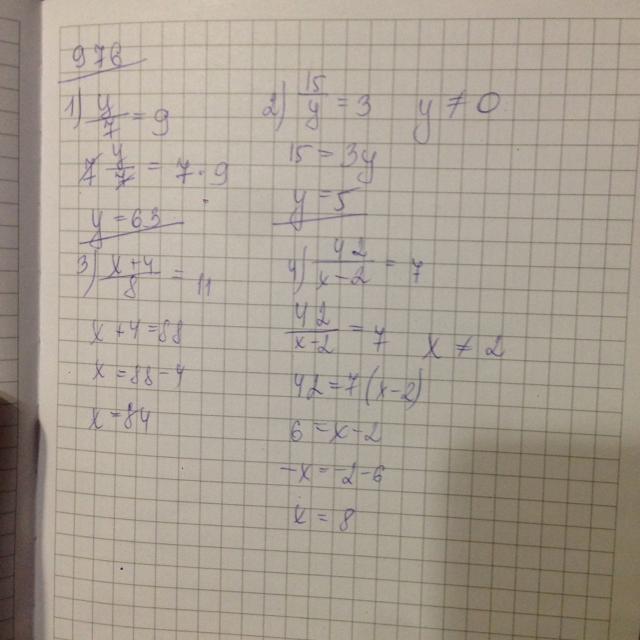 976
1) y/7 = 9
7 y/7 = 7 · 9
y = 63
2) 15/y = 3 y ≠ 0
15 = 3y
y = 5
3) x+4/8 = 11
x + 4 = 88
x = 88 - 4
x = 84
4) 42/x-2 = 7
42/x-2 = 7 x ≠ 2
42 = 7(x-2)
6 = x - 2
-x = -2 - 6
x = 8